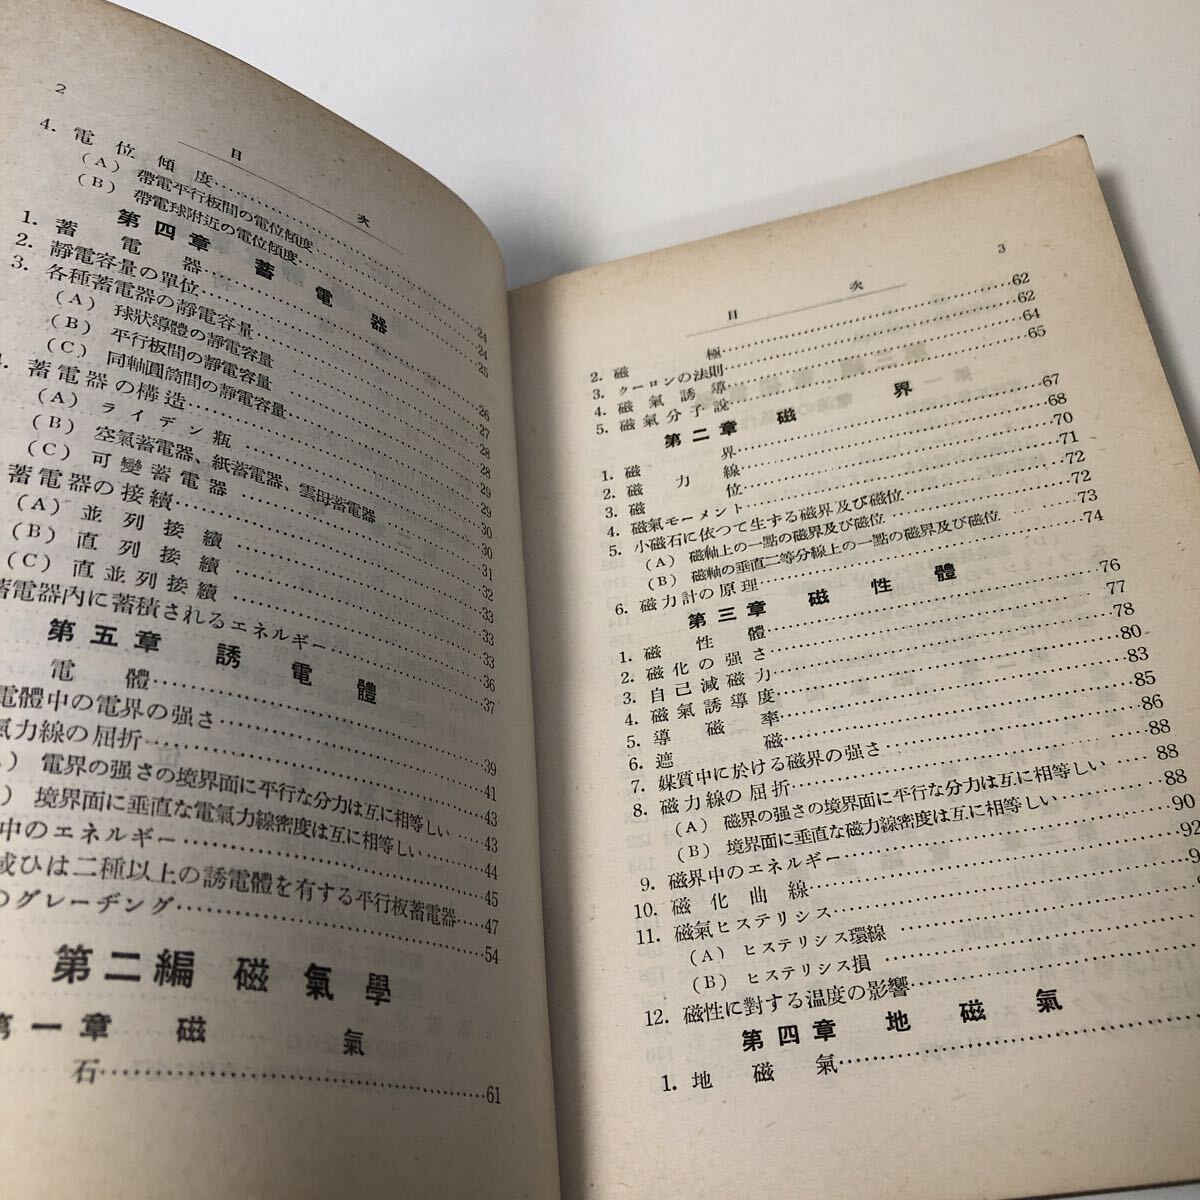 2
目 次
4. 電位傾度
(A) 帶電平行板間の電位傾度
(B) 帶電球附近の電位傾度
第四章 蓄電器
1. 蓄電器 24
2. 靜電容量の單位 24
3. 各種蓄電器の靜電容量 25
(A) 球狀導體の靜電容量
(B) 平行板間の靜電容量 26
(C) 同軸圓筒間の靜電容量 27
蓄電器の構造 28
(A) ライデン瓶 28
(B) 空氣蓄電器、紙蓄電器、雲母蓄電器 29
(C) 可變蓄電器 29
蓄電器の接續 30
(A) 並列接續 30
(B) 直列接續 31
(C) 直並列接續 32
蓄電器內に蓄積されるエネルギー 33
第五章 誘電體 33
電體 36
電體中の電界の强さ 37
氣力線の屈折 39
) 電界の强さの境界面に平行な分力は互に相等しい 41
) 境界面に垂直な電氣力線密度は互に相等しい 43
中のエネルギー 43
或ひは二種以上の誘電體を有する平行板蓄電器 45
のグレーヂング 47
54
第二編 磁氣學
第一章 磁氣
石 61
目 次
3
2. 磁極 62
3. クーロンの法則 62
4. 磁氣誘導 64
5. 磁氣分子說 65
第二章 磁界
1. 磁界 67
2. 磁力線 68
3. 磁位 70
4. 磁氣モーメント 71
5. 小磁石に依つて生ずる磁界及び磁位 72
(A) 磁軸上の一點の磁界及び磁位 72
(B) 磁軸の垂直二等分線上の一點の磁界及び磁位 73
6. 磁力計の原理 74
第三章 磁性體
1. 磁性體 76
2. 磁化の强さ 77
3. 自己減磁力 78
4. 磁氣誘導度 80
5. 導磁率 83
6. 遮磁 85
7. 媒質中に於ける磁界の强さ 86
8. 磁力線の屈折 88
(A) 磁界の强さの境界面に平行な分力は互に相等しい 88
(B) 境界面に垂直な磁力線密度は互に相等しい 88
9. 磁界中のエネルギー 90
10. 磁化曲線 92
11. 磁氣ヒステリシス
(A) ヒステリシス環線
(B) ヒステリシス損
12. 磁性に對する温度の影響
第四章 地磁氣
1. 地磁氣